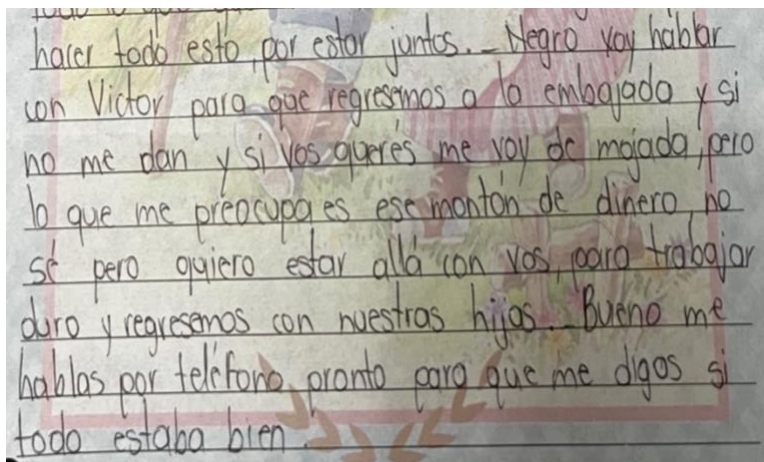 hacer todo esto, por estar juntos. Negro voy hablar
con Victor para que regresemos a la embajada y si
no me dan y si vos querés me voy de mojada, pero
lo que me preocupa es ese montón de dinero, no
sé pero quiero estar allá con vos, para trabajar
duro y regresemos con nuestros hijos. Bueno me
hablas por teléfono pronto para que me digas si
todo estaba bien.